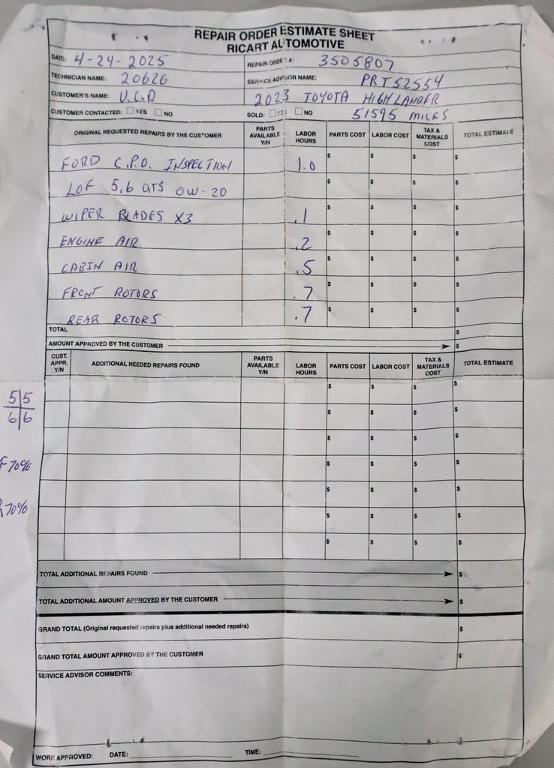 REPAIR ORDER ESTIMATE SHEET
RICART AUTOMOTIVE
DATE: 4-24-2025 REPAIR ORDER #: 3505807
TECHNICIAN NAME: 20626 SERVICE ADVISOR NAME: PRT52554
CUSTOMER'S NAME: U.C.D 2023 TOYOTA HIGHLANDER
CUSTOMER CONTACTED: YES NO SOLD: YES NO 51595 MILES
ORIGINAL REQUESTED REPAIRS BY THE CUSTOMER PARTS AVAILABLE Y/N LABOR HOURS PARTS COST LABOR COST TAX & MATERIALS COST TOTAL ESTIMATE
FORD C.P.O. INSPECTION 1.0 $ $ $ $
LOF 5.6 QTS 0W-20 $ $ $ $
WIPER BLADES X3 .1 $ $ $ $
ENGINE AIR .2 $ $ $ $
CABIN AIR .5 $ $ $ $
FRONT ROTORS .7 $ $ $ $
REAR ROTORS .7 $ $ $ $
TOTAL $
AMOUNT APPROVED BY THE CUSTOMER $
CUST. APPR. Y/N ADDITIONAL NEEDED REPAIRS FOUND PARTS AVAILABLE Y/N LABOR HOURS PARTS COST LABOR COST TAX & MATERIALS COST TOTAL ESTIMATE
$ $ $ $
5 5 $ $ $ $
6 6 $ $ $ $
F 70% $ $ $ $
$ $ $ $
R 70% $ $ $ $
$ $ $ $
TOTAL ADDITIONAL REPAIRS FOUND $
TOTAL ADDITIONAL AMOUNT APPROVED BY THE CUSTOMER $
GRAND TOTAL (Original requested repairs plus additional needed repairs) $
GRAND TOTAL AMOUNT APPROVED BY THE CUSTOMER $
SERVICE ADVISOR COMMENTS:
WORK APPROVED: DATE: TIME: